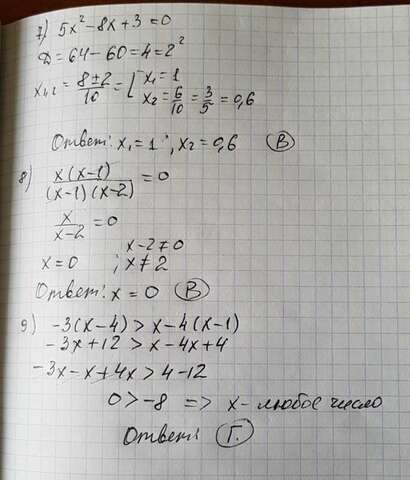 7) 5x² - 8x + 3 = 0
D = 64 - 60 = 4 = 2²
x₁,₂ = (8 ± 2)/10 = [ x₁ = 1
x₂ = 6/10 = 3/5 = 0,6
Ответ: x₁ = 1; x₂ = 0,6 (В)
8) x(x-1)/((x-1)(x-2)) = 0
x/(x-2) = 0
x-2 ≠ 0
x = 0 ; x ≠ 2
Ответ: x = 0 (В)
9) -3(x-4) > x-4(x-1)
-3x+12 > x-4x+4
-3x-x+4x > 4-12
0 > -8 => x - любое число
Ответ: (Г.)